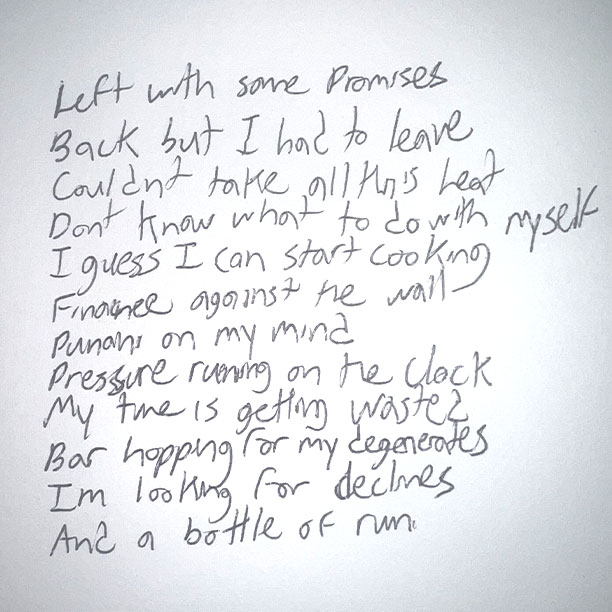 Left with some Promises
Back but I had to leave
Couldnt take all this heat
Dont know what to do with myself
I guess I can start cooking
Finance against the wall
Punani on my mind
Pressure running on the clock
My time is getting wasted
Bar hopping for my degenerates
Im looking for declines
And a bottle of rum